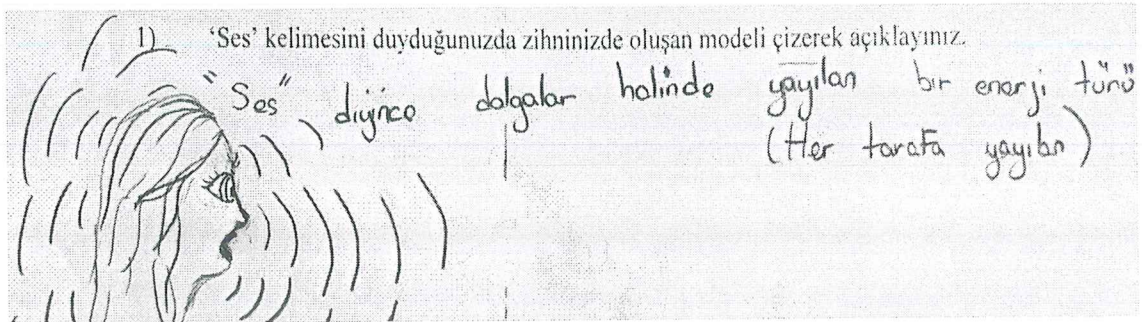 1) 'Ses' kelimesini duyduğunuzda zihninizde oluşan modeli çizerek açıklayınız.
"Ses" diyince dalgalar halinde yayılan bir enerji türü
(Her tarafa yayılan)